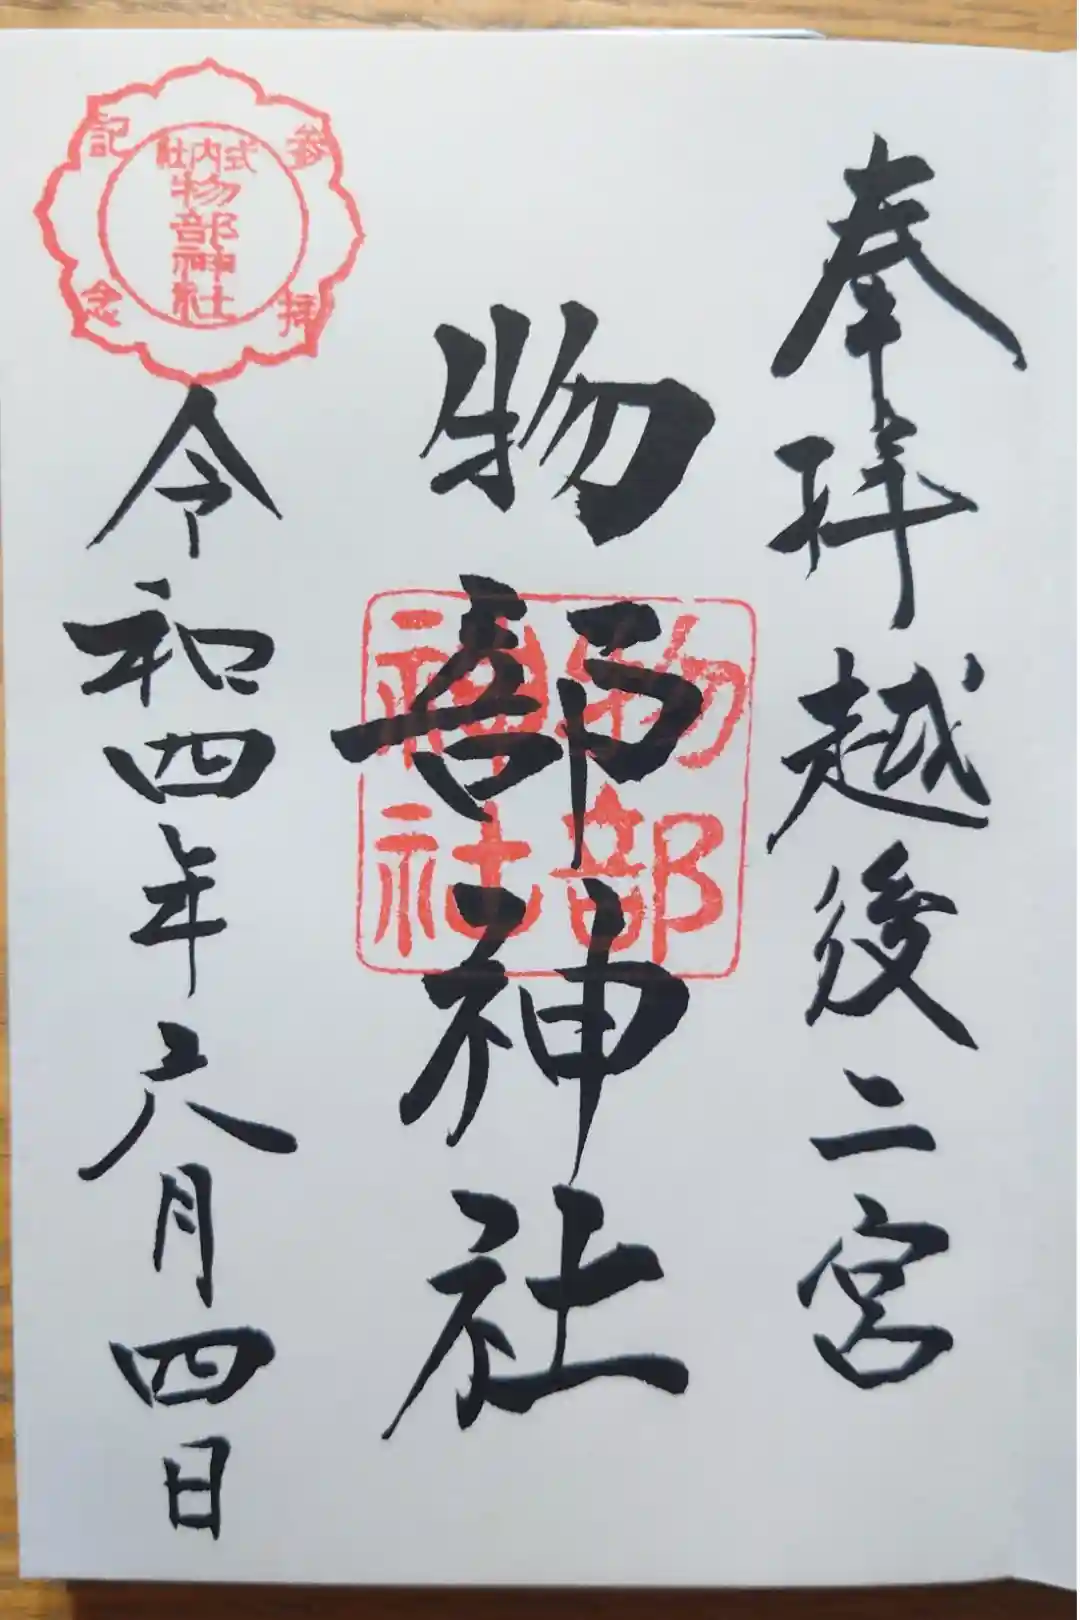 奉拝 越後二宮
物部神社
物部
神社
参拝記念
式内社
物部神社
令和四年六月四日